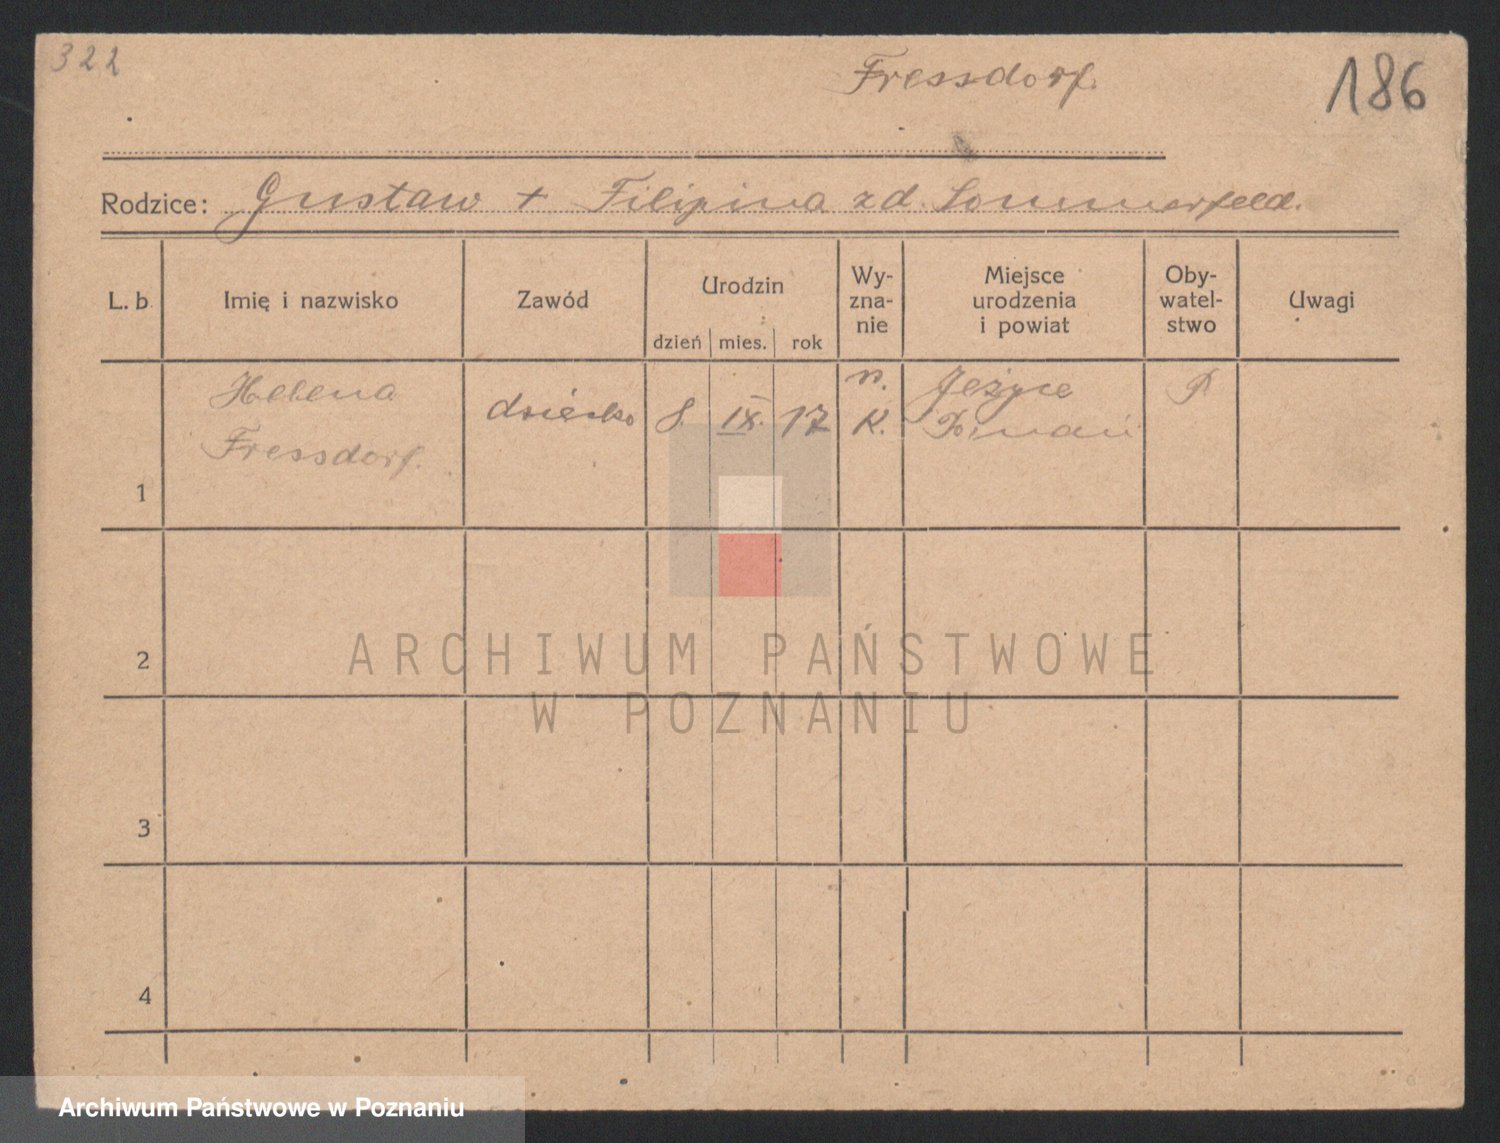 322
Fressdorf.
186
Rodzice: Gustaw + Filipina zd. Sommerfeld.
L. b. Imię i nazwisko Zawód Urodzin dzień mies. rok Wy-zna-nie Miejsce urodzenia i powiat Oby-watel-stwo Uwagi
Helena n. Jeżyce P
Fressdorf. dziecko 8. IX. 17 K. Poznań
1
2
ARCHIWUM PAŃSTWOWE
W POZNANIU
3
4
Archiwum Państwowe w Poznaniu